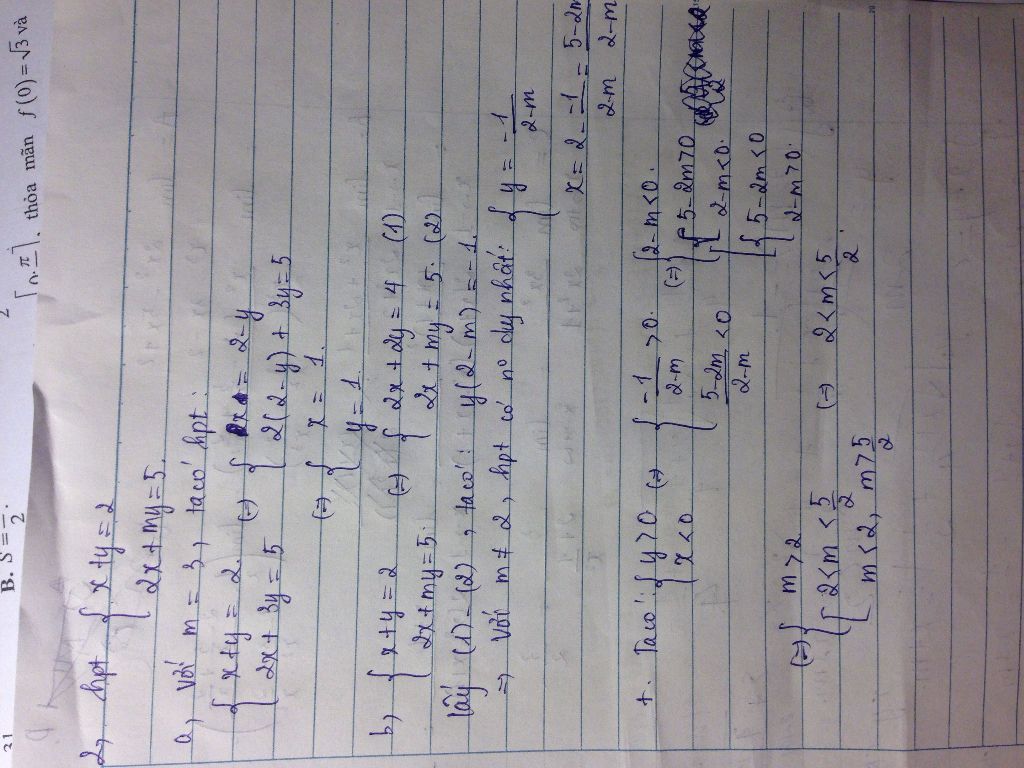 31
B. S = π/2.
[0; π/2], thỏa mãn f(0) = √3 và
2, hpt { x + y = 2
2x + my = 5.
a, Với m = 3, ta có hpt:
{ x + y = 2 (=) { x = 2 - y
2x + 3y = 5 2(2 - y) + 3y = 5
(=) { x = 1.
y = 1.
b, { x + y = 2 (=) { 2x + 2y = 4 (1)
2x + my = 5. 2x + my = 5. (2)
Lấy (1) - (2), ta có: y(2 - m) = -1.
=> Với m ≠ 2, hpt có nº duy nhất: { y = -1/(2-m)
x = 2 - -1/(2-m) = 5-2m/2-m
+. Ta có: { y > 0 (=) { -1/(2-m) > 0. (=) { 2 - m < 0.
x < 0 5-2m/2-m < 0 [ { 5 - 2m > 0
2 - m < 0.
{ 5 - 2m < 0
2 - m > 0.
(=) { m > 2
[ 2 < m < 5/2 (=) 2 < m < 5/2
m < 2, m > 5/2